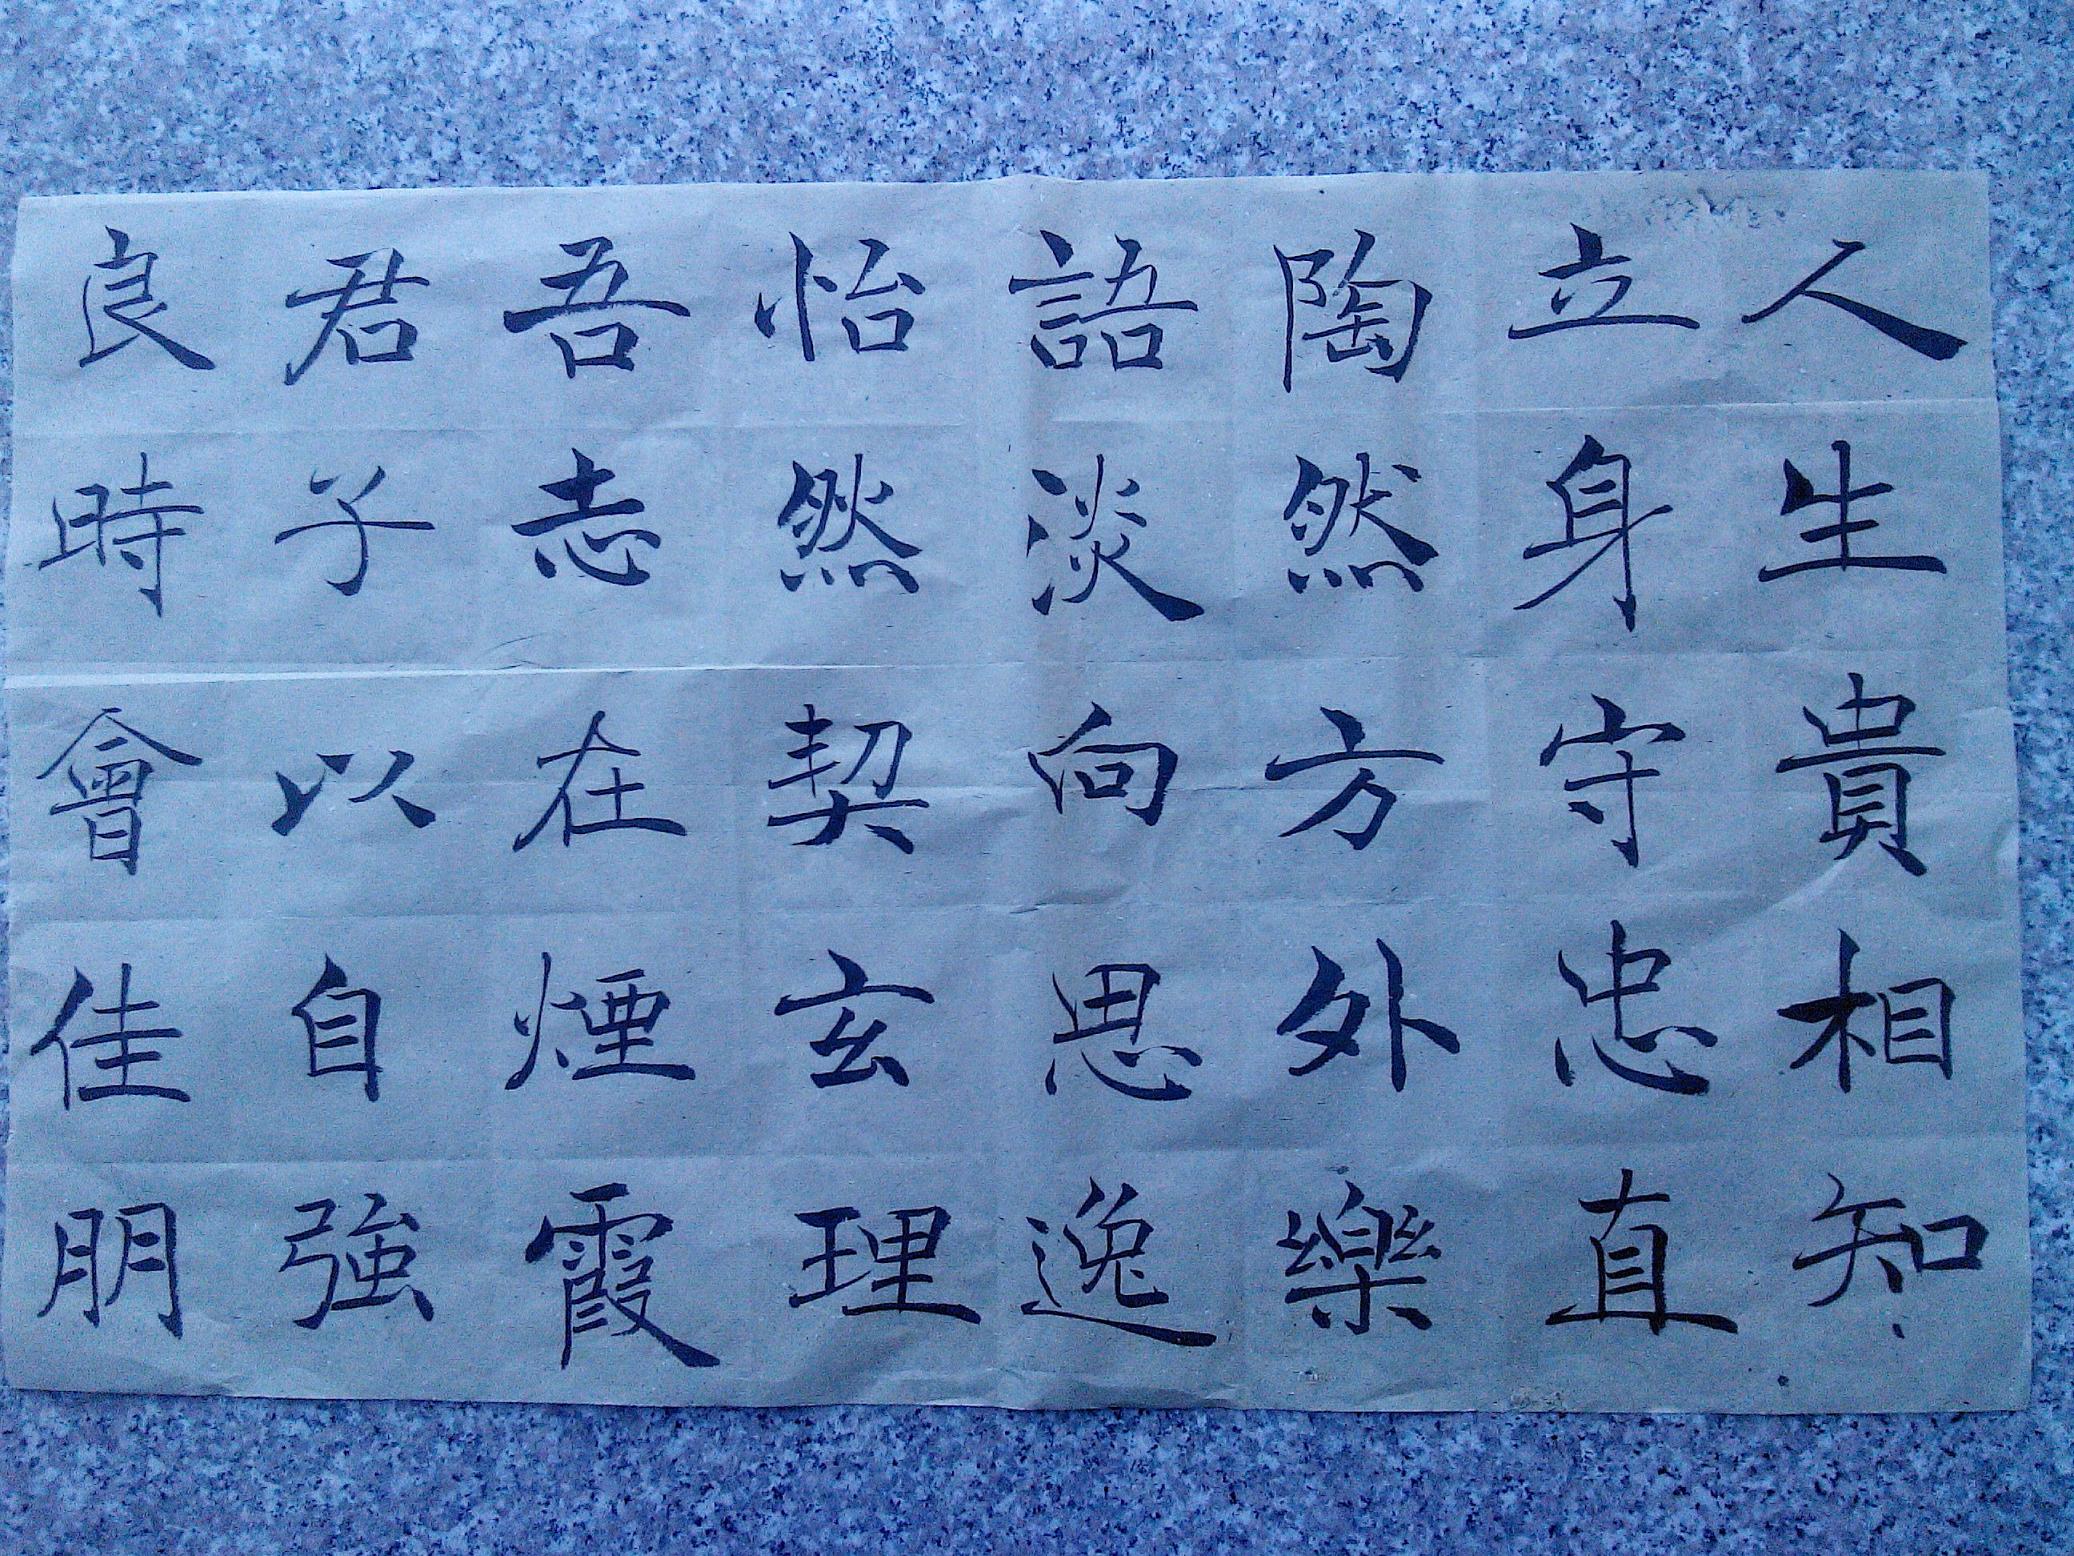 人生貴相知
立身守忠直
陶然方外樂
語淡向思逸
怡然契玄理
吾志在煙霞
君子以自強
良時會佳朋